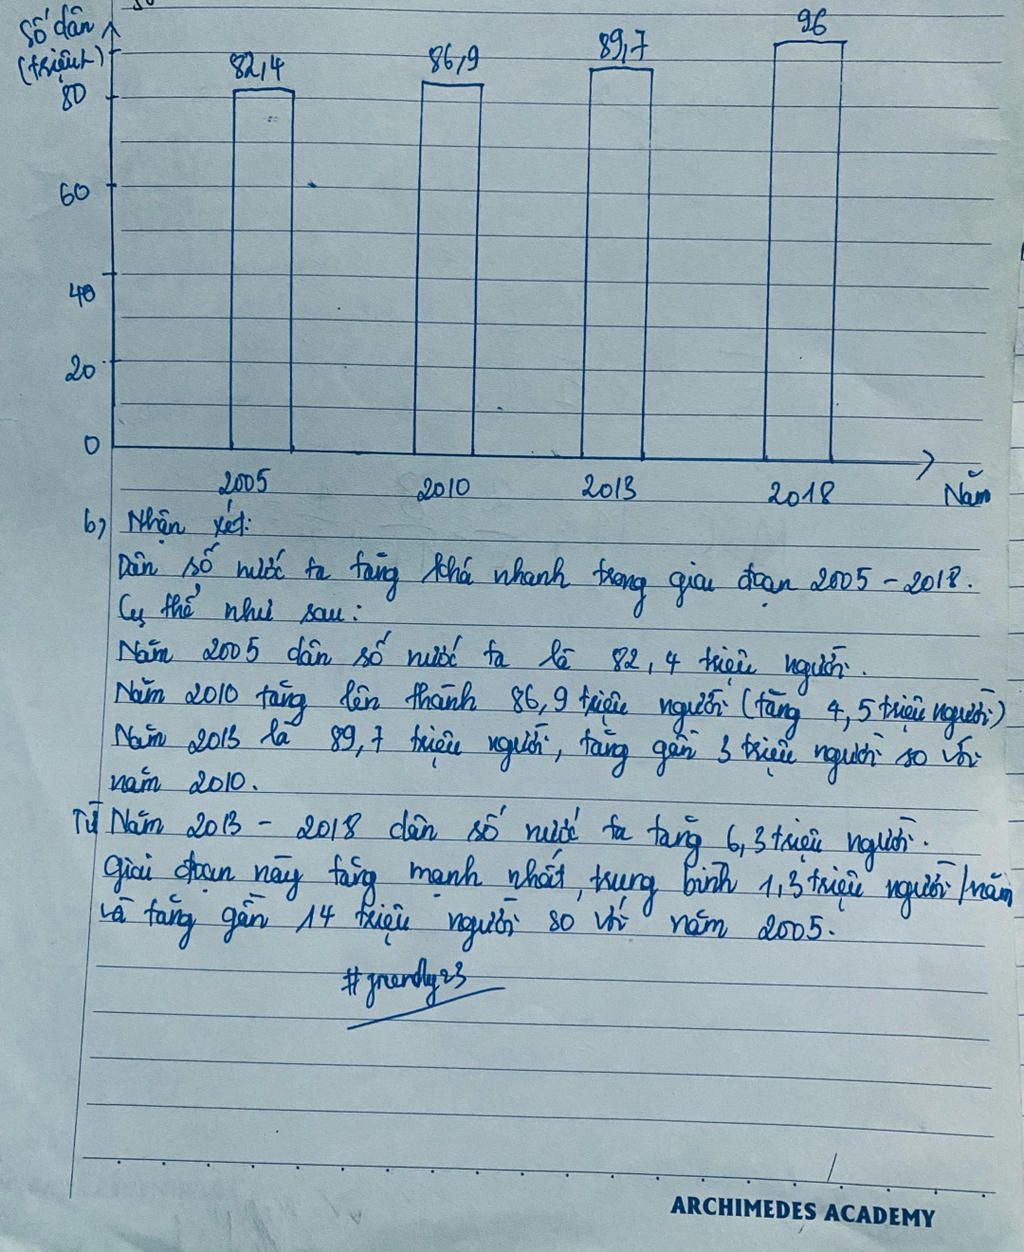 Số dân
(triệu)
82,4 86,9 89,7 96
80
60
40
20
0
2005 2010 2013 2018 Năm
b, Nhận xét:
Dân số nước ta tăng khá nhanh trong giai đoạn 2005 - 2018.
Cụ thể như sau:
Năm 2005 dân số nước ta là 82,4 triệu người.
Năm 2010 tăng lên thành 86,9 triệu người (tăng 4,5 triệu người)
Năm 2013 là 89,7 triệu người, tăng gần 3 triệu người so với
năm 2010.
Từ Năm 2013 - 2018 dân số nước ta tăng 6,3 triệu người.
Giai đoạn này tăng mạnh nhất, trung bình 1,3 triệu người/năm
và tăng gần 14 triệu người so với năm 2005.
ARCHIMEDES ACADEMY